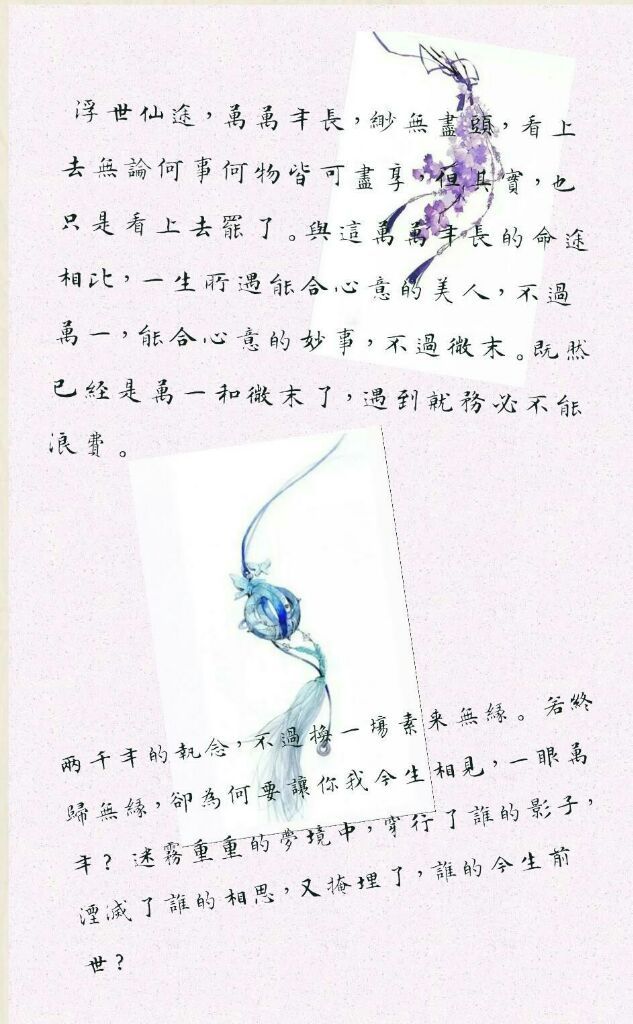 浮世仙途，萬萬年長，緲無盡頭，看上
去無論何事何物皆可盡享，但其實，也
只是看上去罷了。與這萬萬年長的命途
相比，一生所遇能合心意的美人，不過
萬一，能合心意的妙事，不過微末。既然
已經是萬一和微末了，遇到就務必不能
浪費。
兩千年的執念，不過換一場素來無緣。若終
歸無緣，卻為何要讓你我今生相見，一眼萬
年？迷霧重重的夢境中，穿行了誰的影子，
湮滅了誰的相思，又掩埋了，誰的今生前
世？